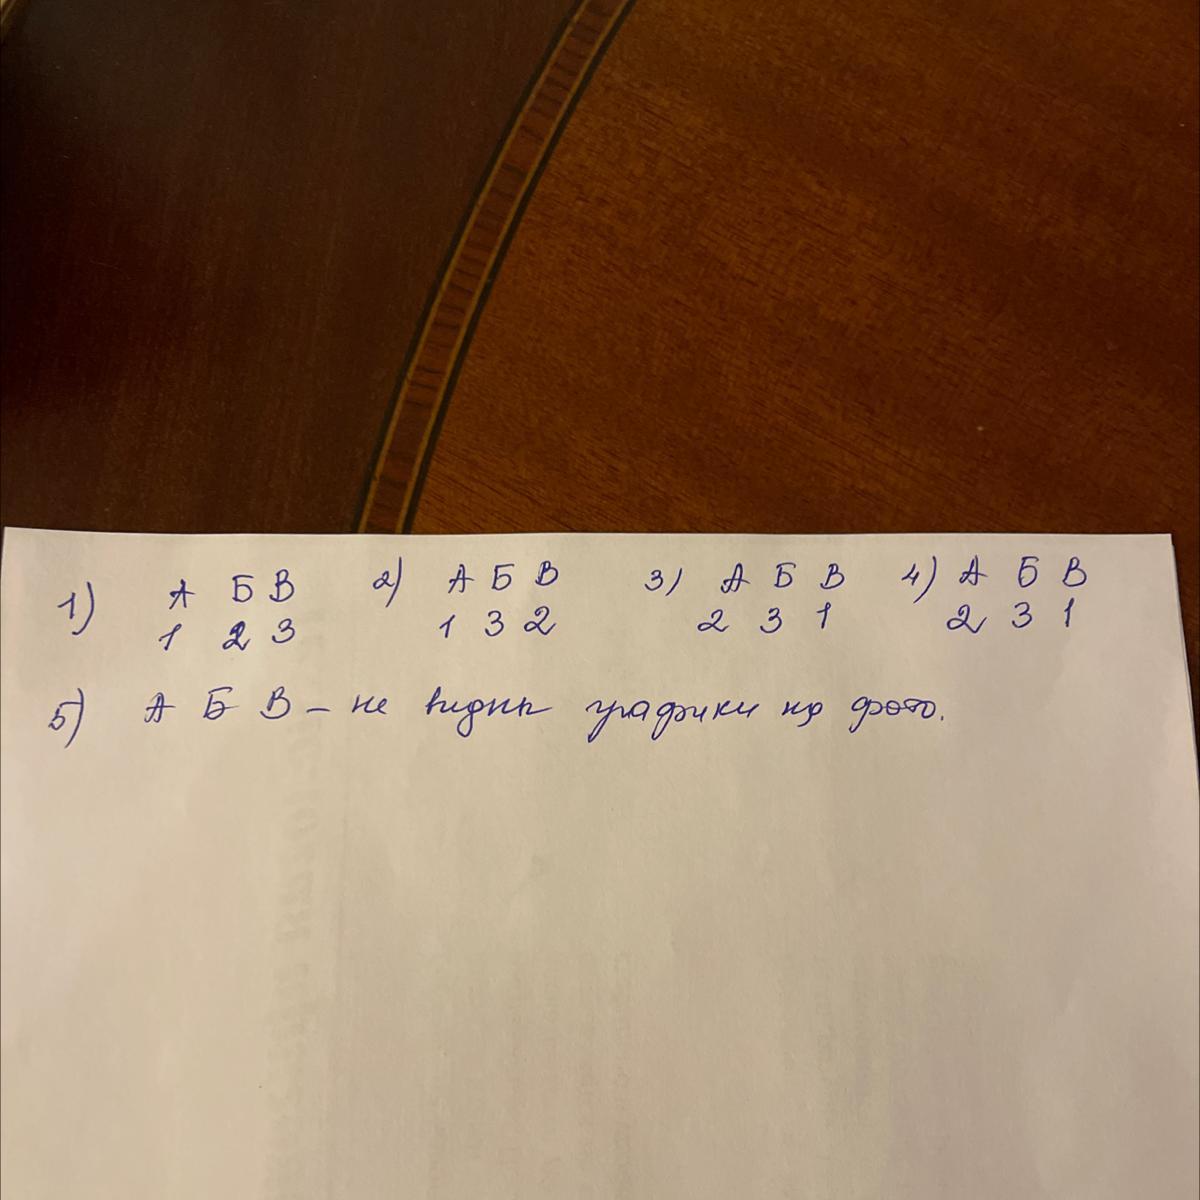 1) А Б В 2) А Б В 3) А Б В 4) А Б В
1 2 3 1 3 2 2 3 1 2 3 1
5) А Б В – не видны графики на фото.